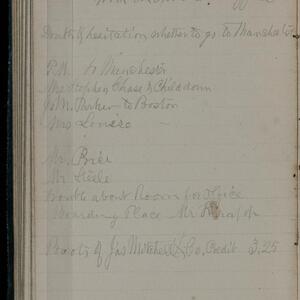 Doubt & hesitation whether to go to Manchester
P.M. to Manchester
Mrs Stephen Chase & Child down
Mr Parker to Boston
Mrs
Mr Price
Mr Steele
Trouble about Room for Price
Boarding Place Mr
Boots of Jas Mitchell & Co. Credit 3.25